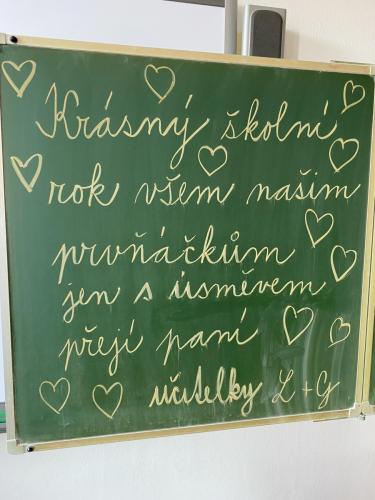 Krásný školní
rok všem našim
prvňáčkům
jen s úsměvem
přejí paní
učitelky L + G